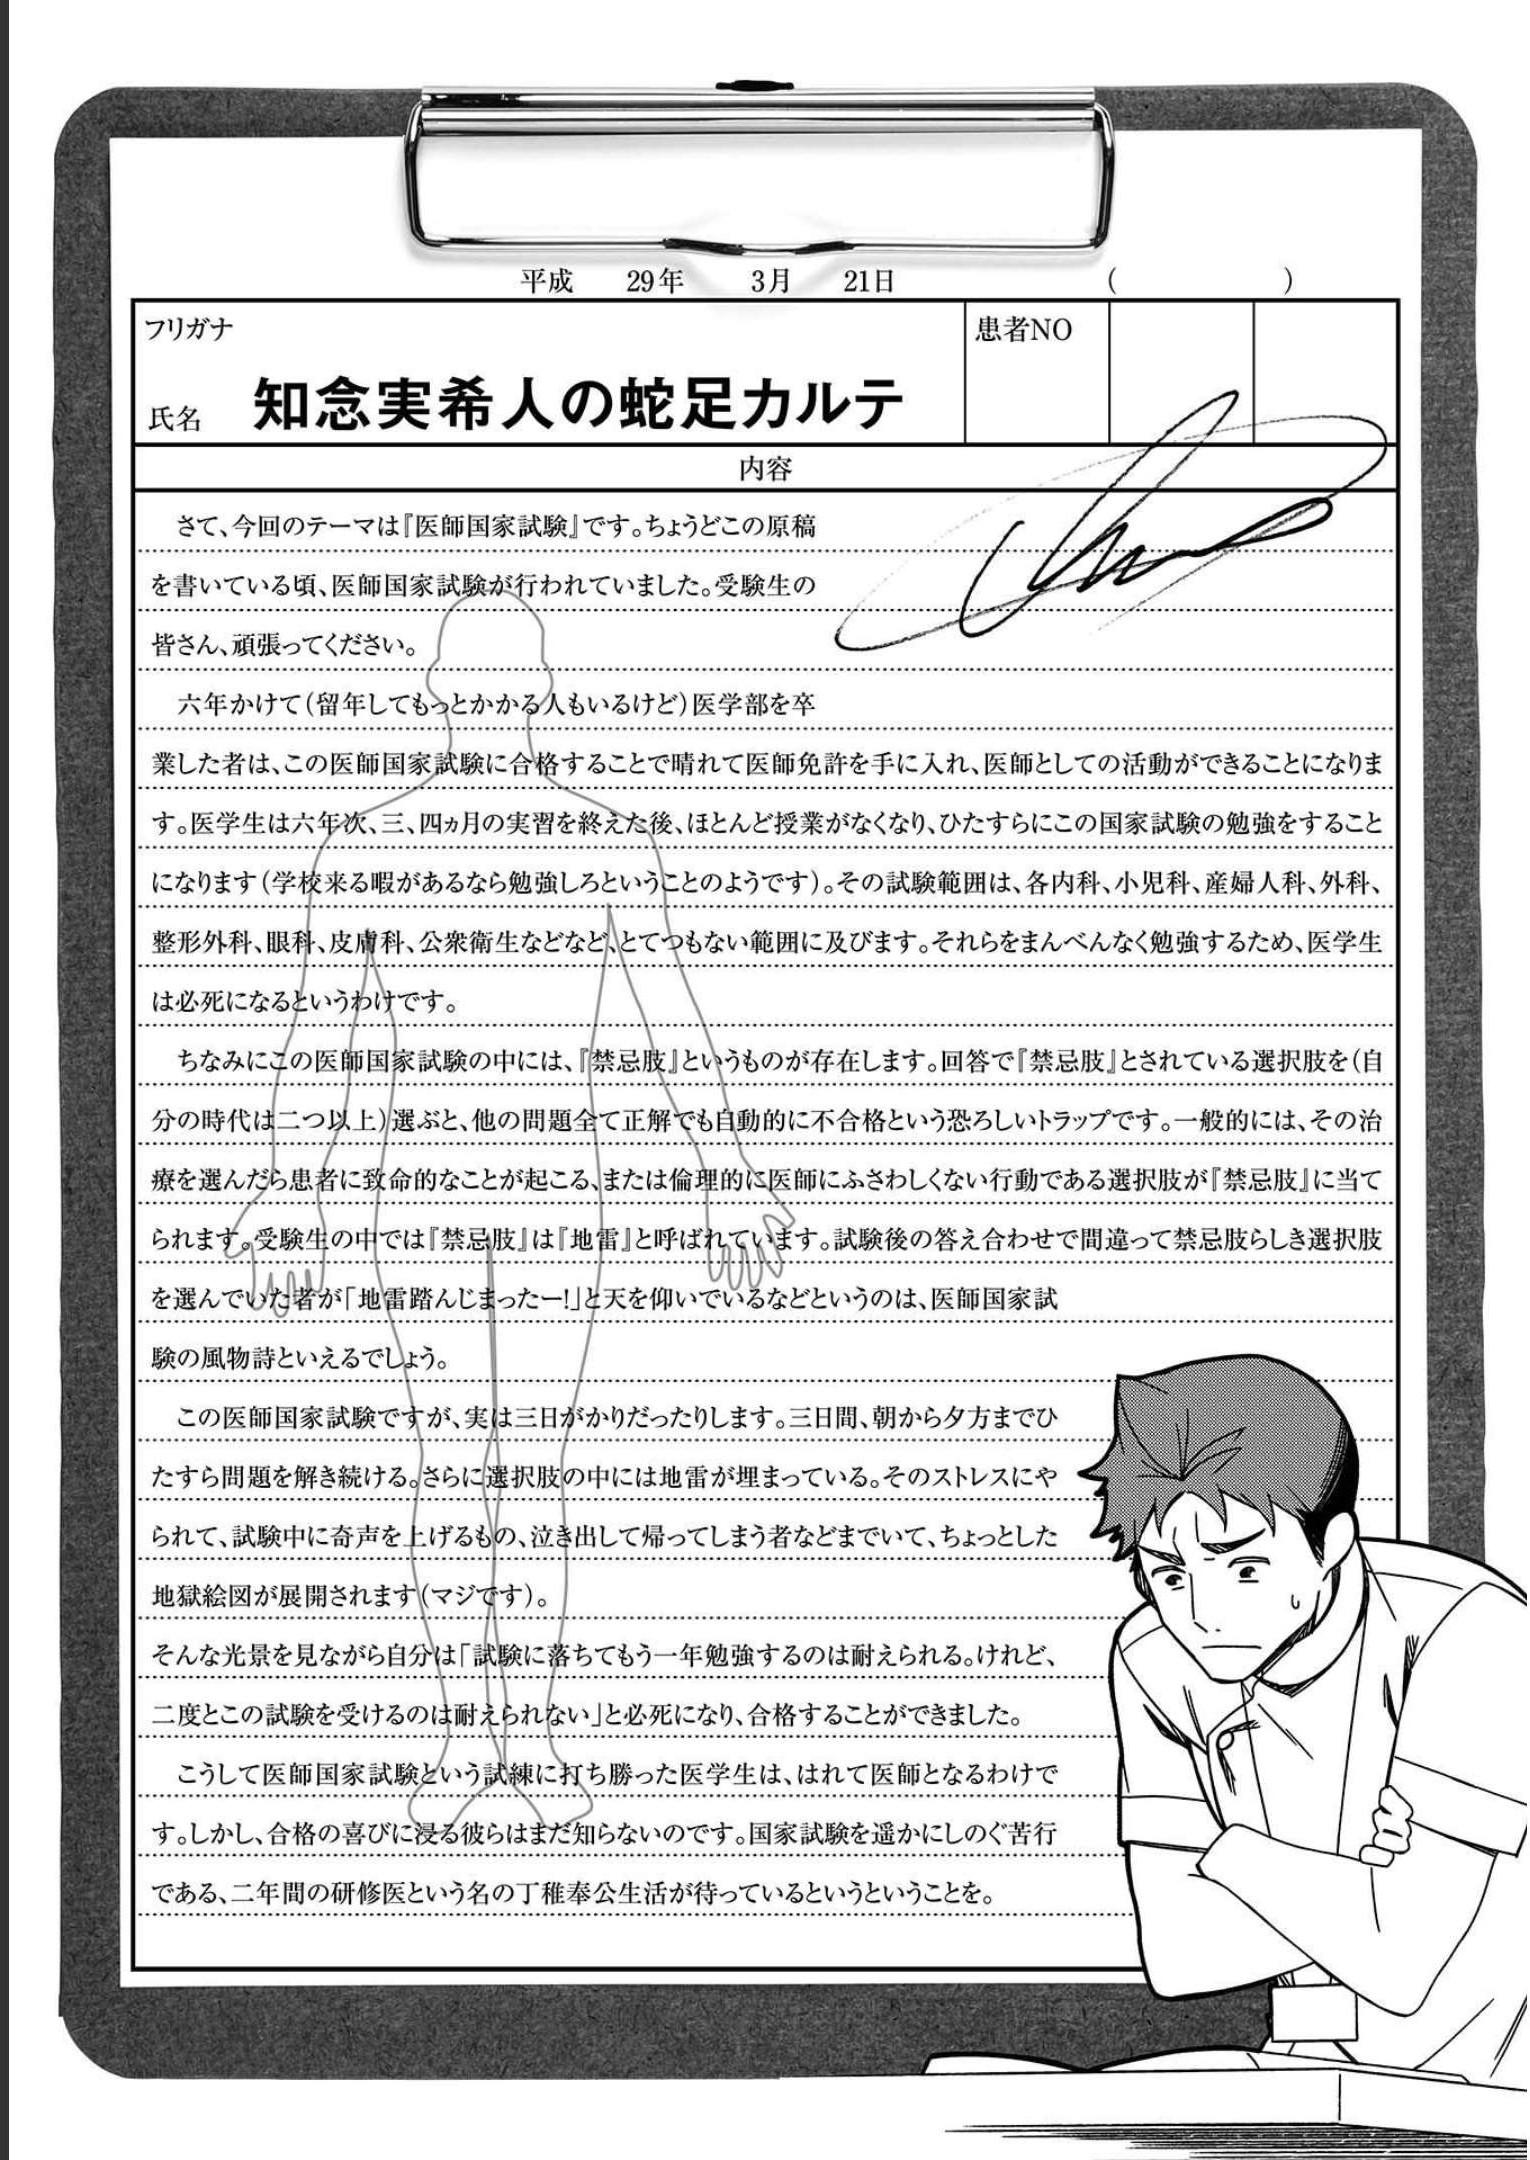 平成 29年 3月 21日 ( )
フリガナ
患者NO
氏名 知念実希人の蛇足カルテ
内容
さて、今回のテーマは『医師国家試験』です。ちょうどこの原稿
を書いている頃、医師国家試験が行われていました。受験生の
皆さん、頑張ってください。
六年かけて(留年してもっとかかる人もいるけど)医学部を卒
業した者は、この医師国家試験に合格することで晴れて医師免許を手に入れ、医師としての活動ができることになりま
す。医学生は六年次、三、四ヵ月の実習を終えた後、ほとんど授業がなくなり、ひたすらにこの国家試験の勉強をすること
になります(学校来る暇があるなら勉強しろということのようです)。その試験範囲は、各内科、小児科、産婦人科、外科、
整形外科、眼科、皮膚科、公衆衛生などなど、とてつもない範囲に及びます。それらをまんべんなく勉強するため、医学生
は必死になるというわけです。
ちなみにこの医師国家試験の中には、『禁忌肢』というものが存在します。回答で『禁忌肢』とされている選択肢を(自
分の時代は二つ以上)選ぶと、他の問題全て正解でも自動的に不合格という恐ろしいトラップです。一般的には、その治
療を選んだら患者に致命的なことが起こる、または倫理的に医師にふさわしくない行動である選択肢が『禁忌肢』に当て
られます。受験生の中では『禁忌肢』は『地雷』と呼ばれています。試験後の答え合わせで間違って禁忌肢らしき選択肢
を選んでいた者が「地雷踏んじまったー!」と天を仰いでいるなどというのは、医師国家試
験の風物詩といえるでしょう。
この医師国家試験ですが、実は三日がかりだったりします。三日間、朝から夕方までひ
たすら問題を解き続ける。さらに選択肢の中には地雷が埋まっている。そのストレスにや
られて、試験中に奇声を上げるもの、泣き出して帰ってしまう者などまでいて、ちょっとした
地獄絵図が展開されます(マジです)。
そんな光景を見ながら自分は「試験に落ちてもう一年勉強するのは耐えられる。けれど、
二度とこの試験を受けるのは耐えられない」と必死になり、合格することができました。
こうして医師国家試験という試練に打ち勝った医学生は、はれて医師となるわけで
す。しかし、合格の喜びに浸る彼らはまだ知らないのです。国家試験を遥かにしのぐ苦行
である、二年間の研修医という名の丁稚奉公生活が待っているというということを。